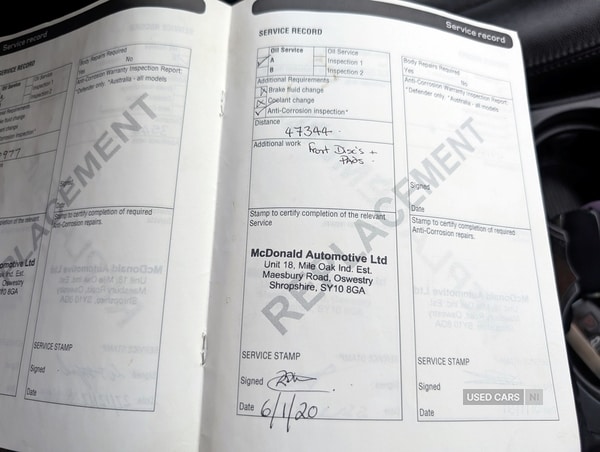 Service record
SERVICE RECORD
Oil Service
Inspection 1
Inspection 2
Body Repairs Required
Yes No
Anti-Corrosion Warranty Inspection Report:
*Defender only. *Australia - all models
Stamp to certify completion of required
Anti-Corrosion repairs.
SERVICE STAMP
Signed
Date
REPLACEMENT
SERVICE RECORD
Oil Service
A
B
Oil Service
Inspection 1
Inspection 2
Additional Requirements
Brake fluid change
Coolant change
Anti-Corrosion inspection*
Distance
47344.
Additional work Front Disc's +
Pads.
Stamp to certify completion of the relevant
Service
McDonald Automotive Ltd
Unit 18, Mile Oak Ind. Est.
Maesbury Road, Oswestry
Shropshire, SY10 8GA
SERVICE STAMP
Signed
Date 6/1/20
REPLACEMENT
Service record
Body Repairs Required
Yes No
Anti-Corrosion Warranty Inspection Report:
*Defender only. *Australia - all models
Signed
Date
Stamp to certify completion of required
Anti-Corrosion repairs.
SERVICE STAMP
Signed
Date
USED CARS NI